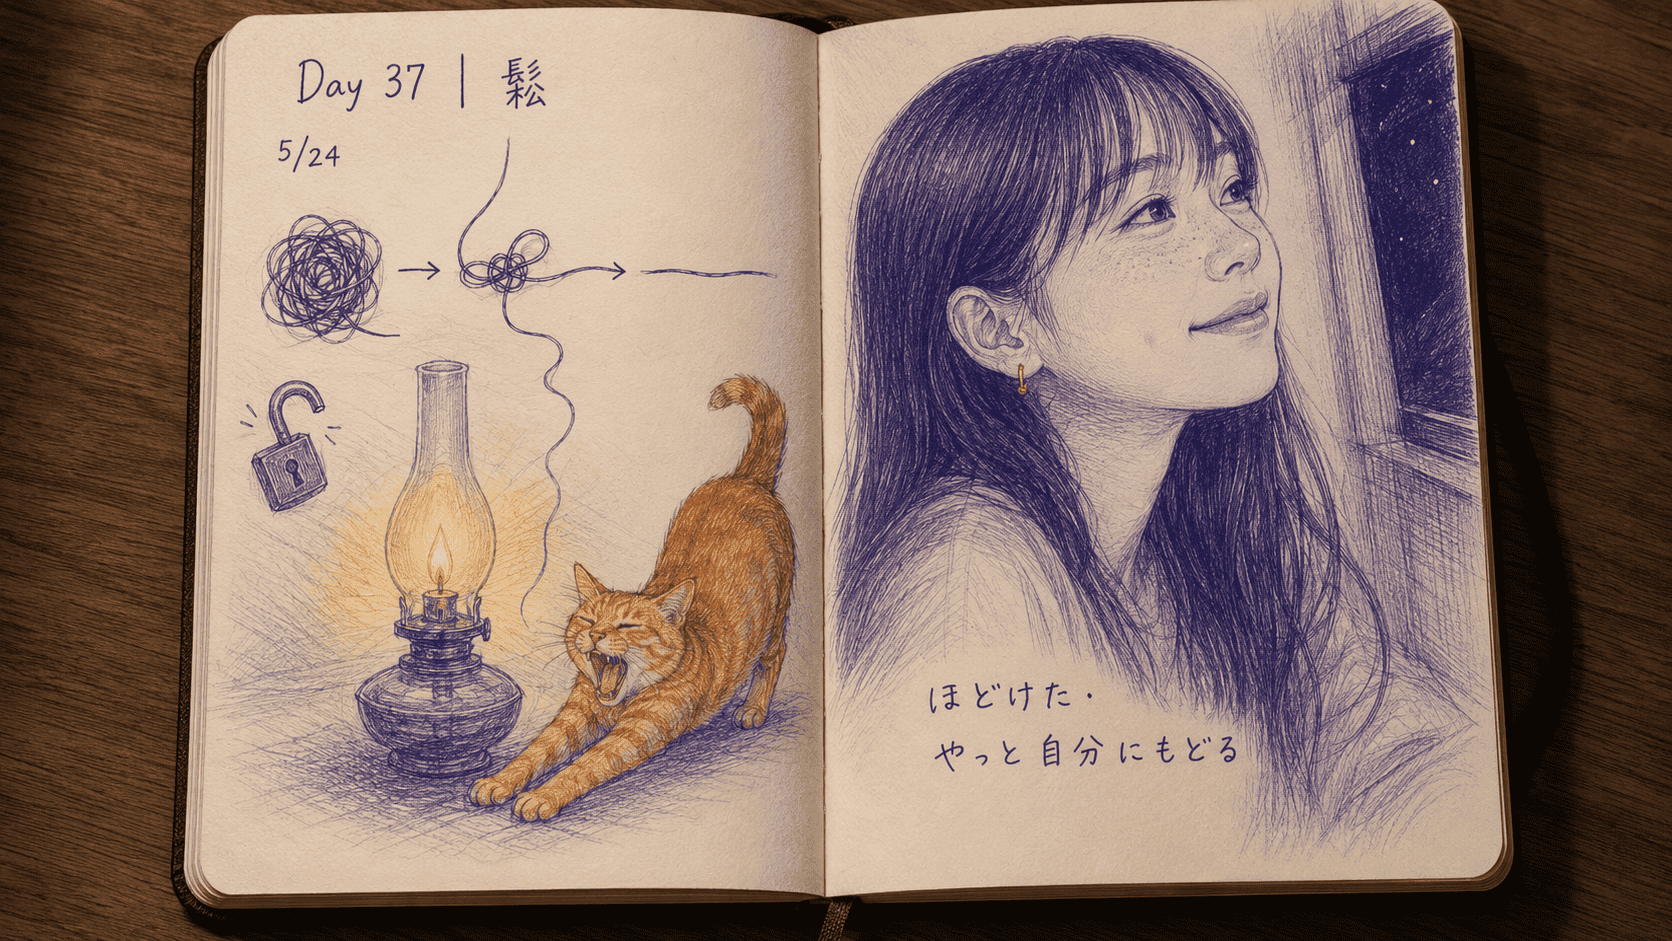 Day 37 | 鬆
5/24
ほどけた.
やっと自分にもどる